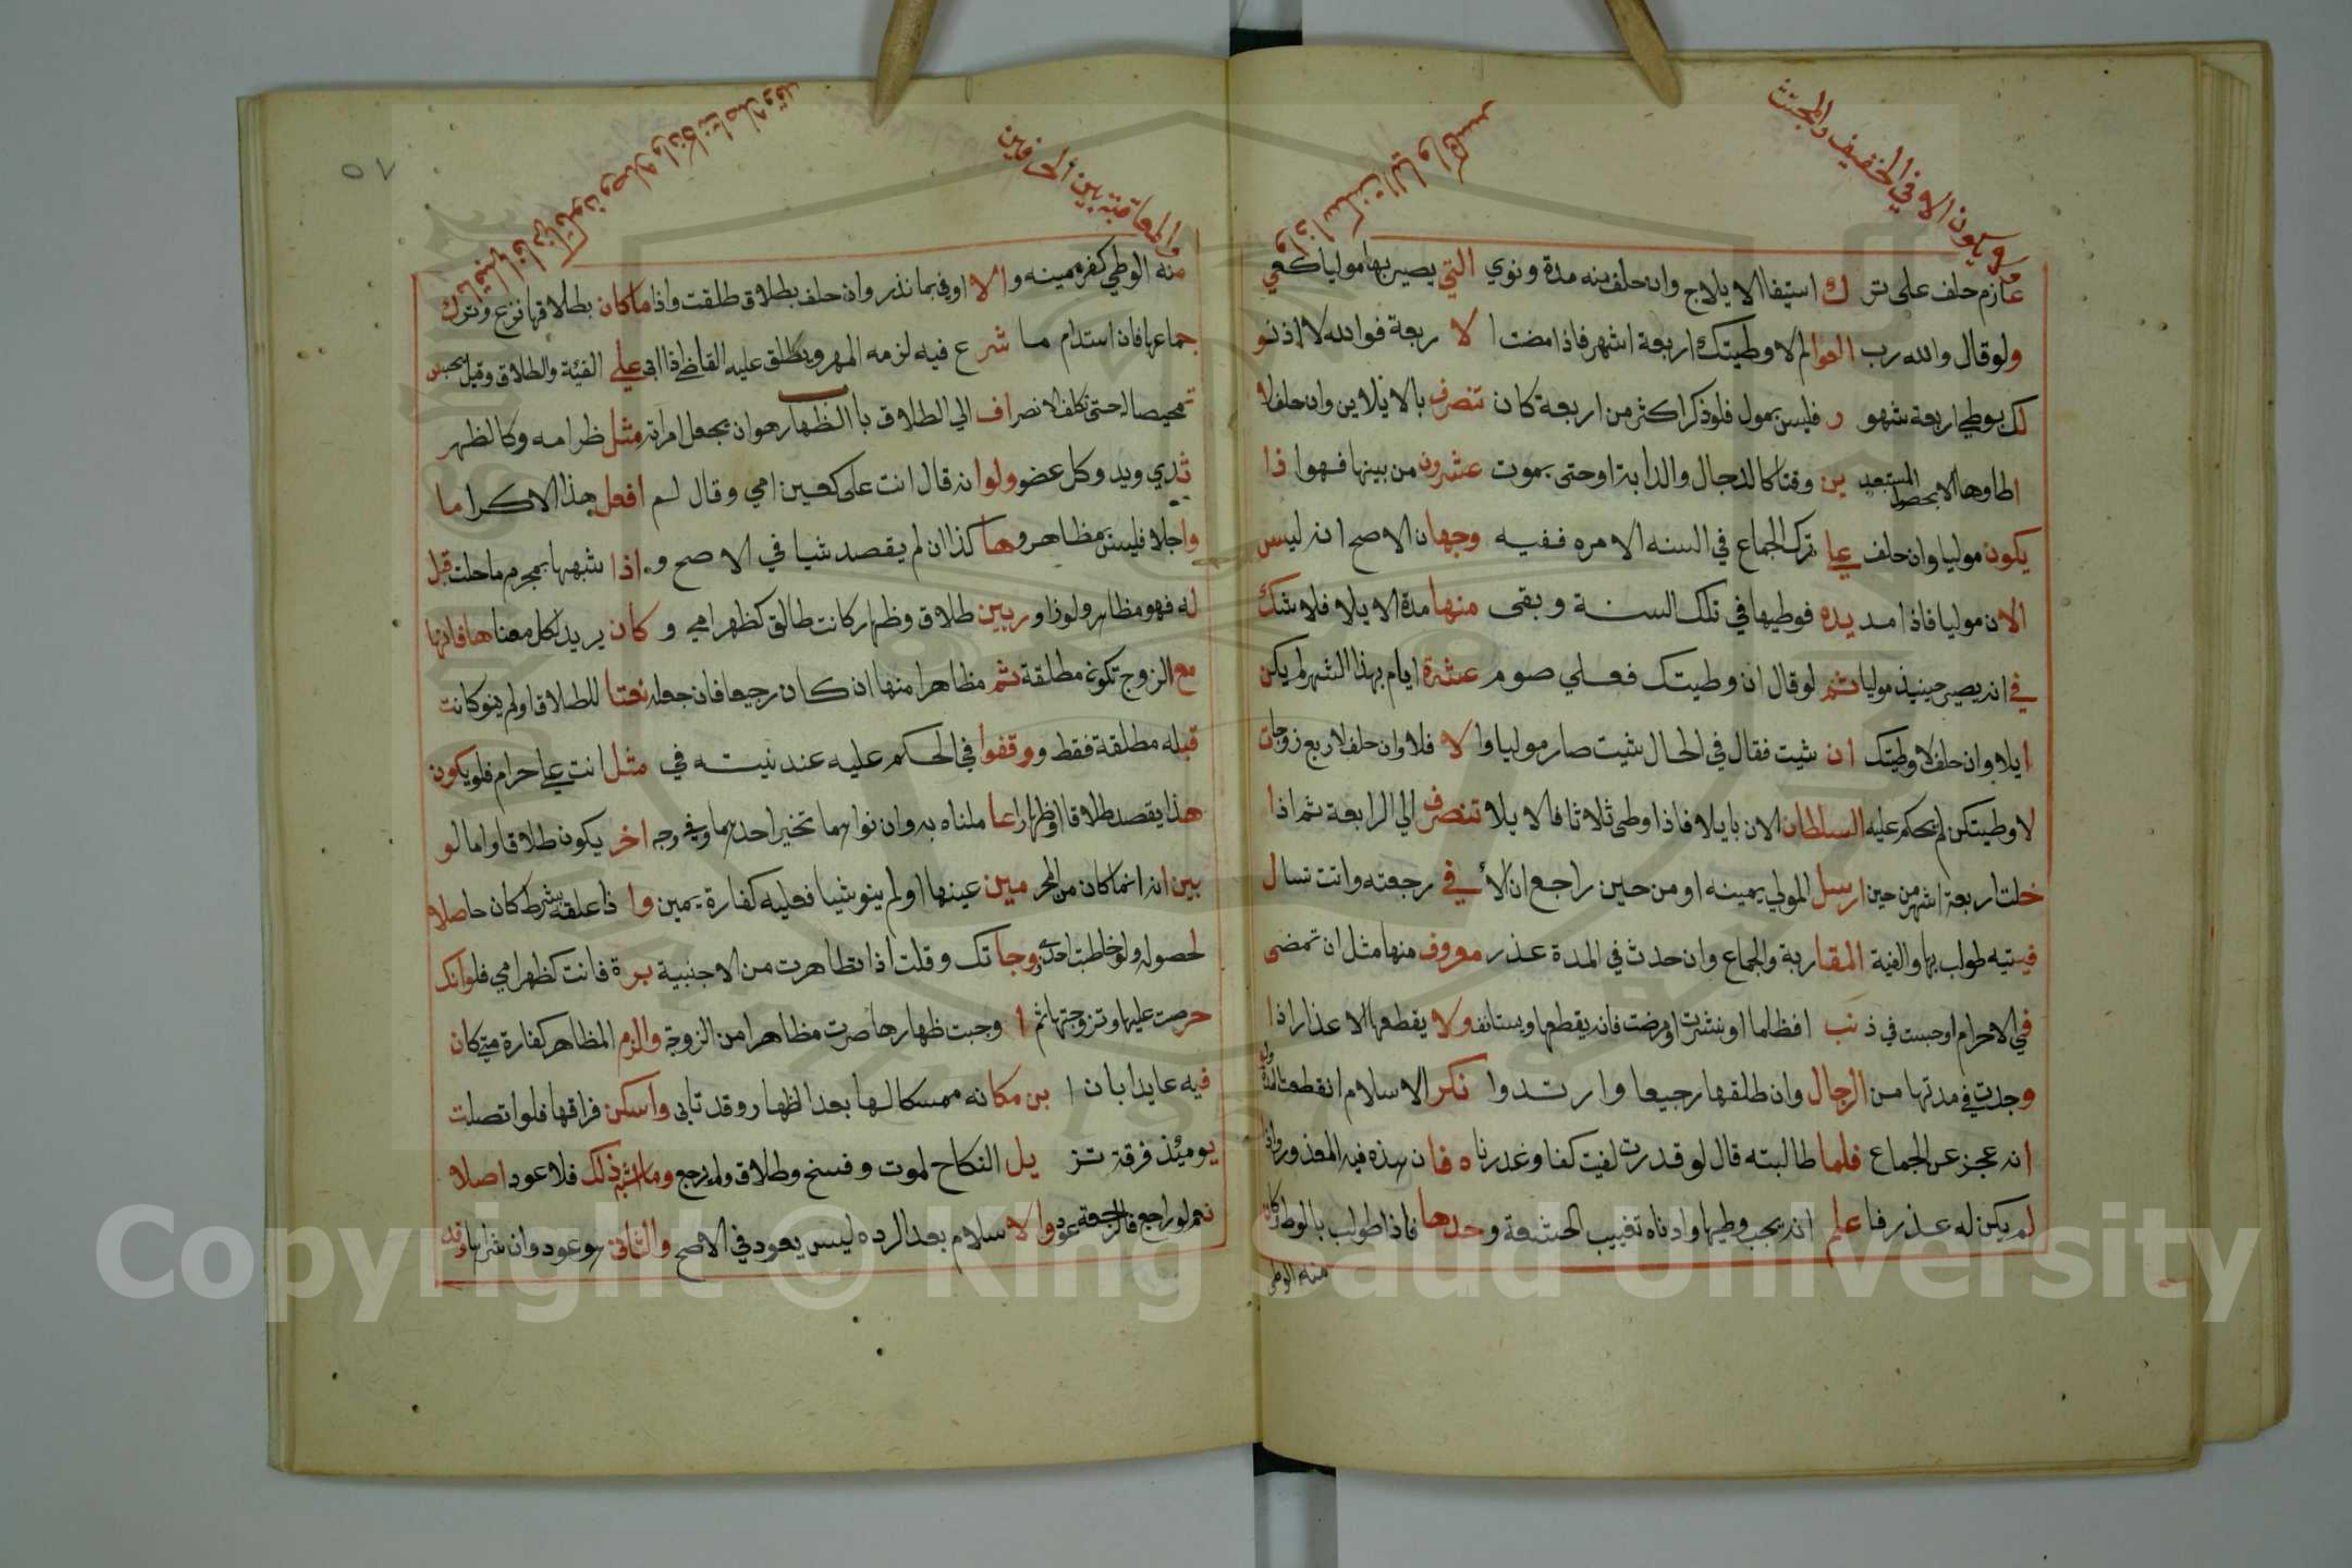 ويكون الا في الخفيف والمجتث
عازم حلف على تر ك استيفا الايلاج وان حلف منه مدة ونوي التي يصير بها موليا كفي
ولو قال والله رب العوالم لا وطيتك اربعة اشهر فاذا مضت ا لا ربعة فوالله لا اذنو
لك بوطي اربعة شهو ر فليس بمول فلو ذكر اكثر من اربعة كان تنصرف بالايلا ين وان حلف لا
اطاوها الا بحصول المستبعد ين وقتا كالدجال والدابة او حتى يموت عشرون من بينها فهوا ذا
يكون موليا وان حلف علي ترك الجماع في السنه الا مره ففيه وجهان الاصح انه ليس
الان موليا فاذا مد يده فوطيها في تلك السنة و بقى منها مدة الايلا فلا شك
في انه يصير حينيذ موليا ثم لو قال ان وطيتك فعلي صوم عشرة ايام بهذا الشهر لم يكن
ايلا وان حلف لا وطيتك ان شيت فقال في الحال شيت صار موليا وا لا فلا وان حلف لاربع زوجات
لا وطيتكن لم يحكم عليه السلطان الان بايلا فاذا وطى ثلاثا فالايلا تنصرف الي الرابعة ثم اذا
خلت اربعة اشهر من حين ارسل المولي يمينه او من حين راجع ان الا في رجعته واتت تسال
فيتيه طولب بها والفية المقاربة والجماع وان حدث في المدة عذر معروف منها مثل ان تمضى
في الاحرام او حبست في ذ نب افظاما او نشرت او مرضت فانه يقطعها ويستانف ولا يقطعها الاعذار اذا
وجدت في مدتها من الرجال وان طلقها رجيعا وار تدوا نكر الاسلام انقطعت المدة
انه عجز عن الجماع فلما طالبته قال لو قدرت لفيت كفا وغدرناه فان هذه فيه المعذور واذا
لم يكن له عذر فا علم انه يجب وطيها وادناه تغييب الحشفة وحدها فاذا طولب بالوطي كان
منه الوطي
والمعاقبة بين الحرفين
منه الوطي كفر يمينه و الا اوفى بما نذر وان حلف بطلاق طلقت واذا ما كان بطلاقها نزع وترك
جماعها فان استدام ما شرع فيه لزمه المهر ويطلق عليه القاضي اذا ابى علي الفيئة والطلاق وقيل يحبس
تمحيصا له حتى تكلف الانصراف الي الطلاق با الظهار هو ان يجعل امراته مثل ظهر امه وكالظهر
ثدي ويد وكل عضو ولو انه قال انت علي كعين امي وقال لم افعل هذا الا كراما
واجلا فليس بمظاهر وها كذا ان لم يقصد شيا في الاصح و اذا شبهها بمحرم ما حلت قبل
له فهو مظاهر ولو زاو ر بين طلاق وظهار كانت طالق كظهر امي و كان يريد لكل معنا ها فانها
مع الزوج تكون مطلقة ثم مظاهرا منها ان كان رجيعا فان جعله نعتا للطلاق او لم ينو كانت
قبله مطلقة فقط و وقفوا في الحكم عليه عند نيته في مثل انت علي حرام فلو يكون
هذا يقصد طلاقا او ظهارا عا ملناه به وان نواهما تخير احدهما وفي وجه اخر يكون طلاقا واما لو
بين انه انما كان من المحر مين عينها او لم ينو شيا فعليه كفارة يمين وا ذا علقه بشرط كان حاصلا
لحصوله ولو خاطبت احدي زوجا تك وقلت اذا تظاهرت من الاجنبية برة فانت كظهر امي فلو انك
حرصت عليها وتزوجتها ثم ا وجبت ظهارها صرت مظاهرا من الزوجة والزم المظاهر كفارة متي كان
فيه عايدا بان ا بن مكانه ممسكا لها بعد الظهار وقد تابى واسكن فراقها فلو اتصلت
يوميئذ فرقة تز يل النكاح لموت وفسخ وطلاق ولم يرجع وما اشبه ذلك فلا عود اصلا
نعم لو راجع فالرجعة عود والاسلام بعد الرده ليس يعود في الاصح والثاني هو عود وان شراها وقد